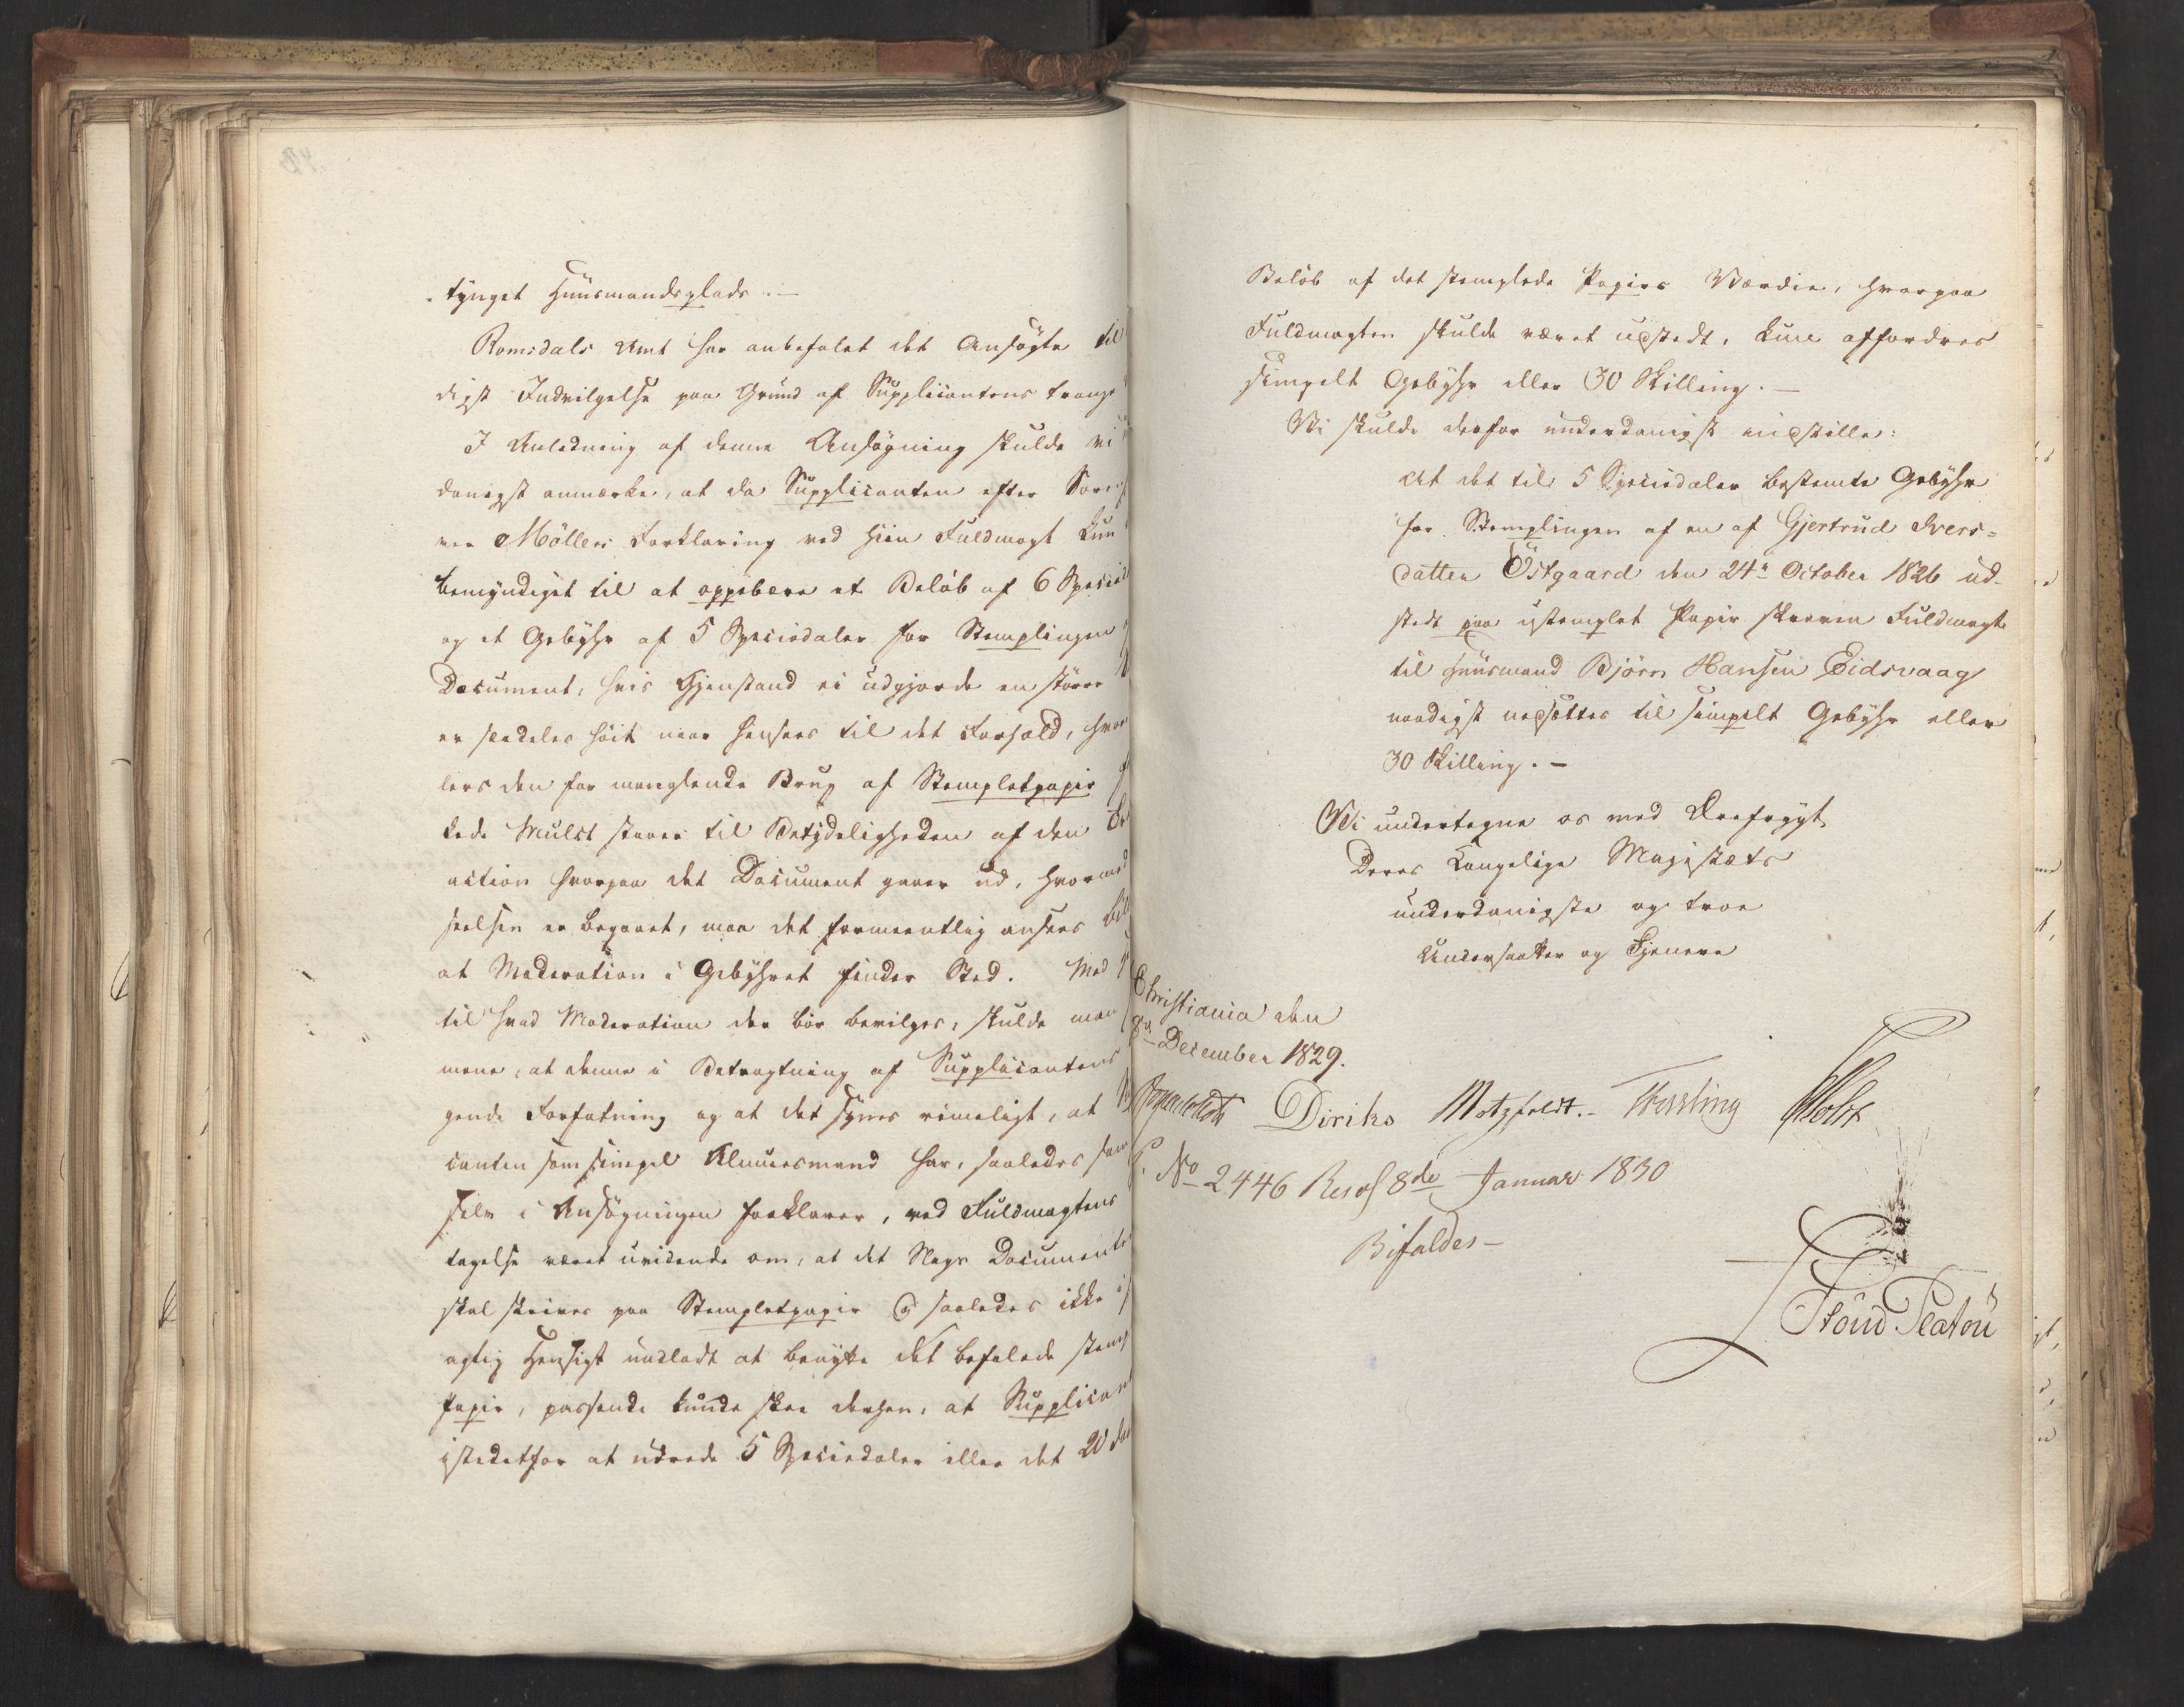 tynget Huusmandsplads.—
Romsdals Amt har anbefalet det Ansøgte til
digst Indvilgelse paa Grund af Supplicantens trange
I Anledning af denne Ansøgning skulde vi
danigst anmærke, at da Supplicanten efter Soren
ver Möllers Forklaring ved hiin Fuldmagt kun
bemyndiget til at oppebære et Beløb af 6 Specied
og et Gebyhr af 5 Speciedaler for Stemplingen
Document, hvis Gjenstand ei udgjorde en større
er saadeles høit naar hensees til det Forhold, hvor
lers den for manglende Brug af Stempletpapir
kede Mulct staaer til Betydeligheden af den
action hvorpaa det Document gaaer ud, hvormed
seelsen er begaaet, maa det formeentlig ansees bil
at Moderation i Gebyhret finder Sted. Med
til hvad Moderation der bör bevilges, skulde man
mene, at denne i Betragtning af Supplicantens
gende Forfatning og at det synes rimeligt, at
canten som simpel Almuesmand har, saaledes som
selv i Ansøgningen forklarer, ved Fuldmagtens
tagelse været uvidende om, at det Slags Documenter
skal skrives paa Stempletpapir og saaledes ikke i
agtig Hensigt undladt at benytte det befalede stemp
Papir, passende kunde skee derhen, at Supplicant
istedetfor at udrede 5 Speciedaler eller det 20 do
Beløb af det stemplede Papirs Værdie, hvorpaa
Fuldmagten skulde været udstedt, kun affordres
simpelt Gebyhr eller 30 Skilling.—
Vi skulde derfor underdanigst indstille:
At det til 5 Speciedaler bestemte Gebyhr
for Stemplingen af en af Gjertrud Ivers=
datter Östgaard den 24de October 1826 ud-
stedt paa ustemplet Papir skreven Fuldmagt
til Huusmand Björn Hansen Eidsvaag
naadigst nedsættes til simpelt Gebyhr eller
30 Skilling.—
Vi undertegne os med Ærefrygt
Deres Kongelige Majestæts
underdanigste og troe
Undersaatter og Tjenere
Christiania den
December 1829.
Diriks Motzfeldt.- Fasting Holst
No 2446 Resol 8de Januar 1830
Bifaldes—